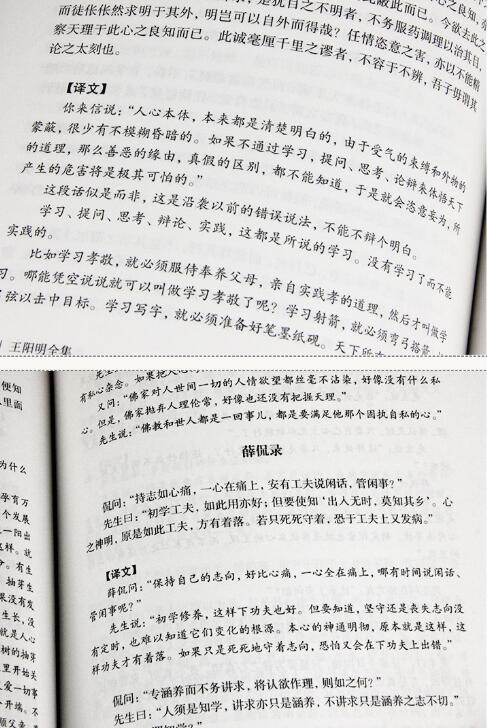 而徒伥伥然求明于其外，明岂可以自外而得哉？任情恣意之害，亦以不能精
察天理于此心之良知而已。此诚毫厘千里之谬者，不容于不辨，吾子毋谓其
论之太刻也。
【译文】
你来信说：“人心本体，本来都是清楚明白的，由于受气的束缚和外物的
蒙蔽，很少有不模糊昏暗的。如果不通过学习，提问、思考、论辩来体悟天下
的道理，那么善恶的缘由，真假的区别，都不能知道，于是就会恣意妄为，所
产生的危害将是极其可怕的。”
这段话似是而非，这是沿袭以前的错误说法，不能不辩个明白。
学习、提问、思考、辩论、实践，这都是所说的学习。没有学习了而不能
实践的。
比如学习孝敬，就必须服侍奉养父母，亲自实践孝的道理，然后才叫做学
习。哪能凭空说说就可以叫做学习孝敬了呢？学习射箭，就必须弯弓搭箭
弦以击中目标。学习写字，就必须准备好笔墨纸砚。天下所
王阳明全集
有私心杂念。如果把人
又问：“佛家对人世间一切的人情欲望都丝毫不沾染，好像没有什么私
心。但是，佛家抛弃人理伦常，好像也还没有把握天理。”
先生说：“佛教和世人都是一回事儿，都是要满足他那个固执自私的心。”
薛侃录
侃问：“持志如心痛，一心在痛上，安有工夫说闲话，管闲事？”
先生曰：“初学工夫，如此用亦好；但要使知‘出入无时，莫知其乡’。心
之神明，原是如此工夫，方有着落。若只死死守着，恐于工夫上又发病。”
【译文】
薛侃问：“保持自己的志向，好比心痛，一心全在痛上，哪有时间说闲话、
管闲事呢？”
先生说：“初学修养，这样下功夫也好。但要知道，坚守还是丧失志向没
有定时，也难以知道它们变化的根源。本心的神通明彻，原本就是这样，这
样功夫才有着落。如果只是死死地守着志向，恐怕又会在下功夫上出错。”
侃问：“专涵养而不务讲求，将认欲作理，则如之何？”
先生曰：“人须是知学，讲求亦只是涵养，不讲求只是涵养之志不切。”
便知
里面
为什么
孕有万
个发展
一阳出
这样。就
今。有生
抽芽生
果没有发
生生长，没
就是人心
树的抽芽
里开始关
爱一切事
个开端。不
顺父亲。”